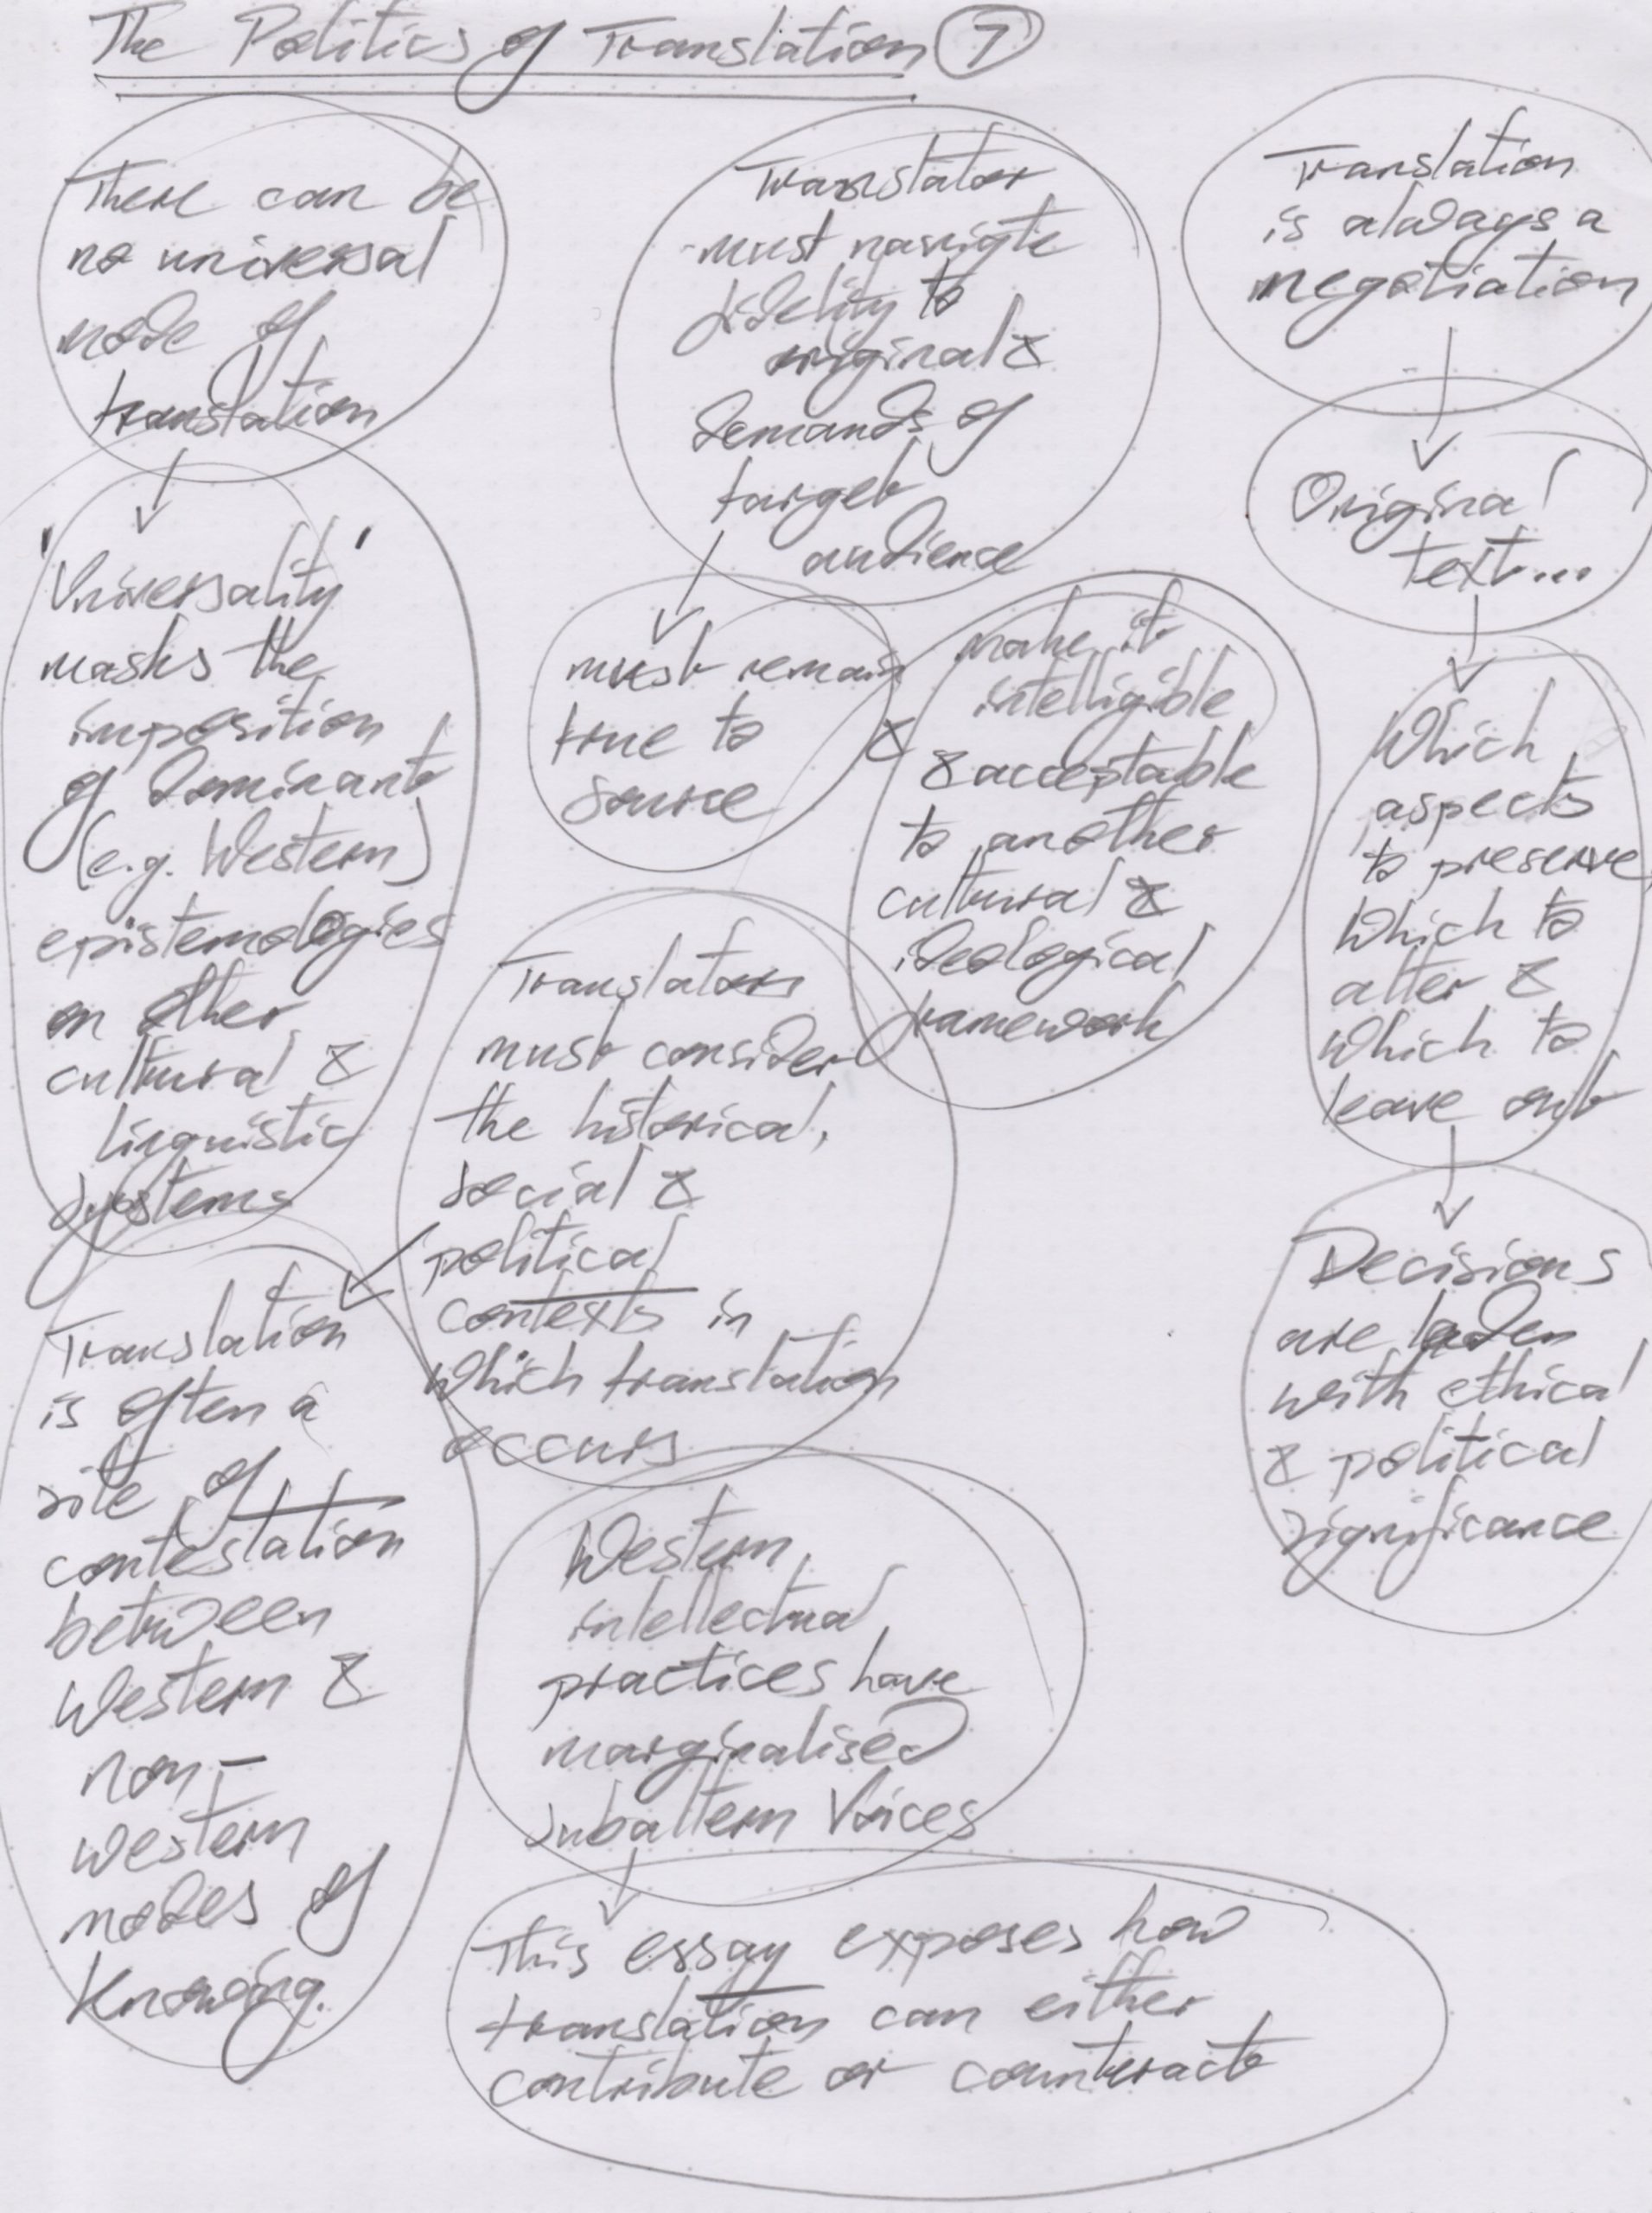 The Politics of Translation 7
There can be
no universal
mode of
translation
'Universality'
masks the
imposition
of dominant
(e.g. Western)
epistemologies
on other
cultural &
linguistic
systems
Translation
is often a
site of
contestation
between
Western &
non-
western
modes of
knowing.
Translator
must navigate
fidelity to
original &
demands of
target
audience
must remain
true to
source
&
make it
intelligible
& acceptable
to another
cultural &
ideological
framework
Translators
must consider
the historical,
social &
political
contexts in
which translation
occurs
Western
intellectual
practices have
marginalised
subaltern voices
This essay exposes how
translation can either
contribute or counteract
Translation
is always a
negotiation
Original
text...
Which
aspects
to preserve,
which to
alter &
which to
leave out
Decisions
are laden
with ethical
& political
significance